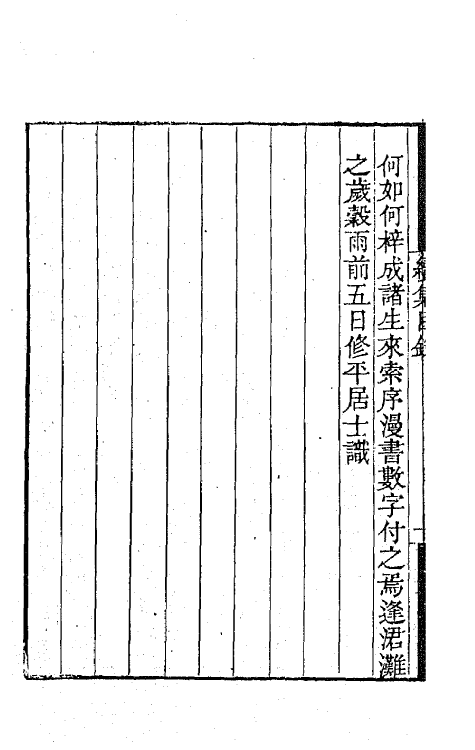 何如何梓成諸生來索序漫書數字付之焉逢涒灘
之歲穀雨前五日修平居士識